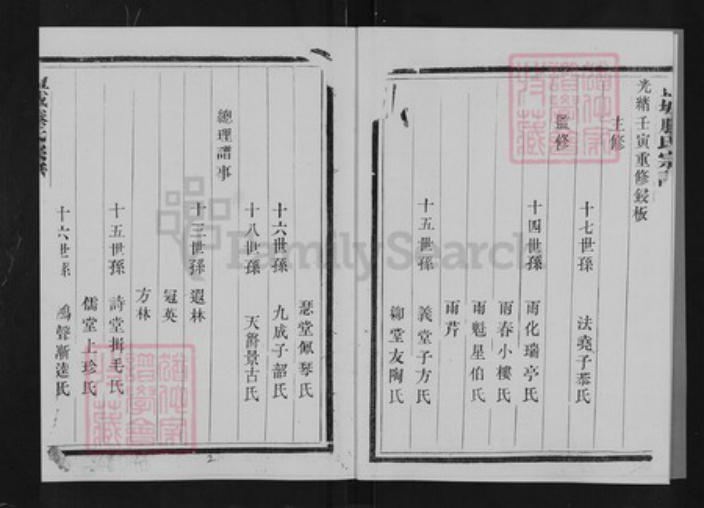 光緒壬寅重修鋟板
主修
十七世孫 法堯子泰氏
監修
十四世孫 雨化瑞亭氏
雨春小樓氏
雨魁星伯氏
雨芹
十五世孫 義堂子方氏
鄉堂友陶氏
瑟堂佩琴氏
十六世孫 九成子韶氏
十八世孫 天爵景古氏
總理譜事
十三世孫 遐林
冠英
方林
十五世孫 詩堂揖毛氏
儒堂上珍氏
十六世孫 鴻聲漸逵氏
FamilySearch